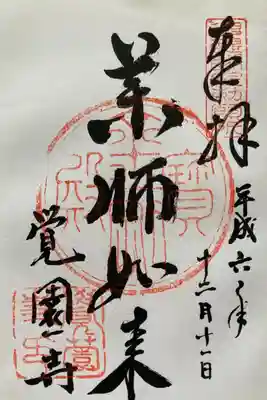 奉拝
平成六年
十二月十一日
薬師如来
覚園寺